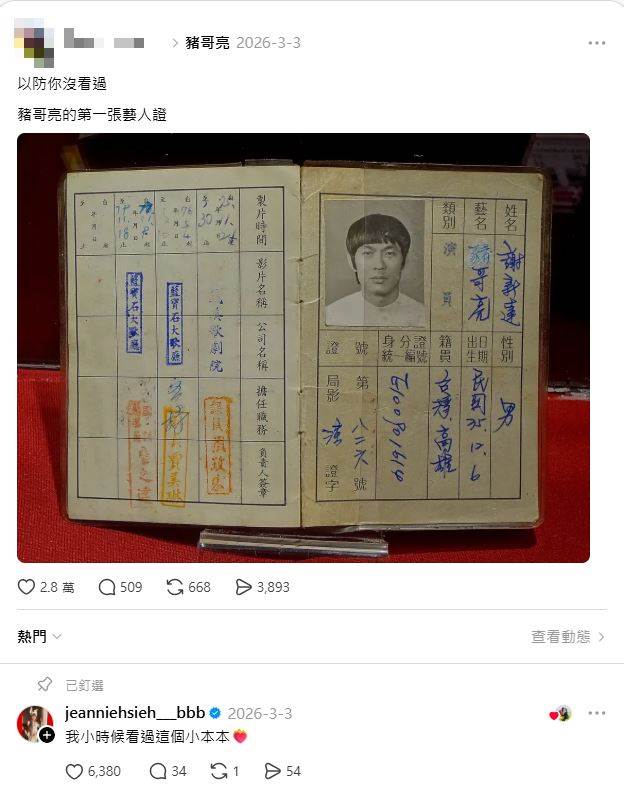 豬哥亮 2026-3-3
以防你沒看過
豬哥亮的第一張藝人證
姓名 謝新達 性別 男
藝名 豬哥亮 出生日期 民國35.12.6
類別 演員 籍貫 台灣高雄
身分證統一編號
證號 局影演證字第八二六號
製片時間
影片名稱
公司名稱
擔任職務
負責人簽章
歌劇院
藍寶石大歌廳
藍寶石大歌廳
2.8 萬 509 668 3,893
熱門 查看動態
已釘選
jeanniehsieh___bbb 2026-3-3
我小時候看過這個小本本
6,380 34 1 54